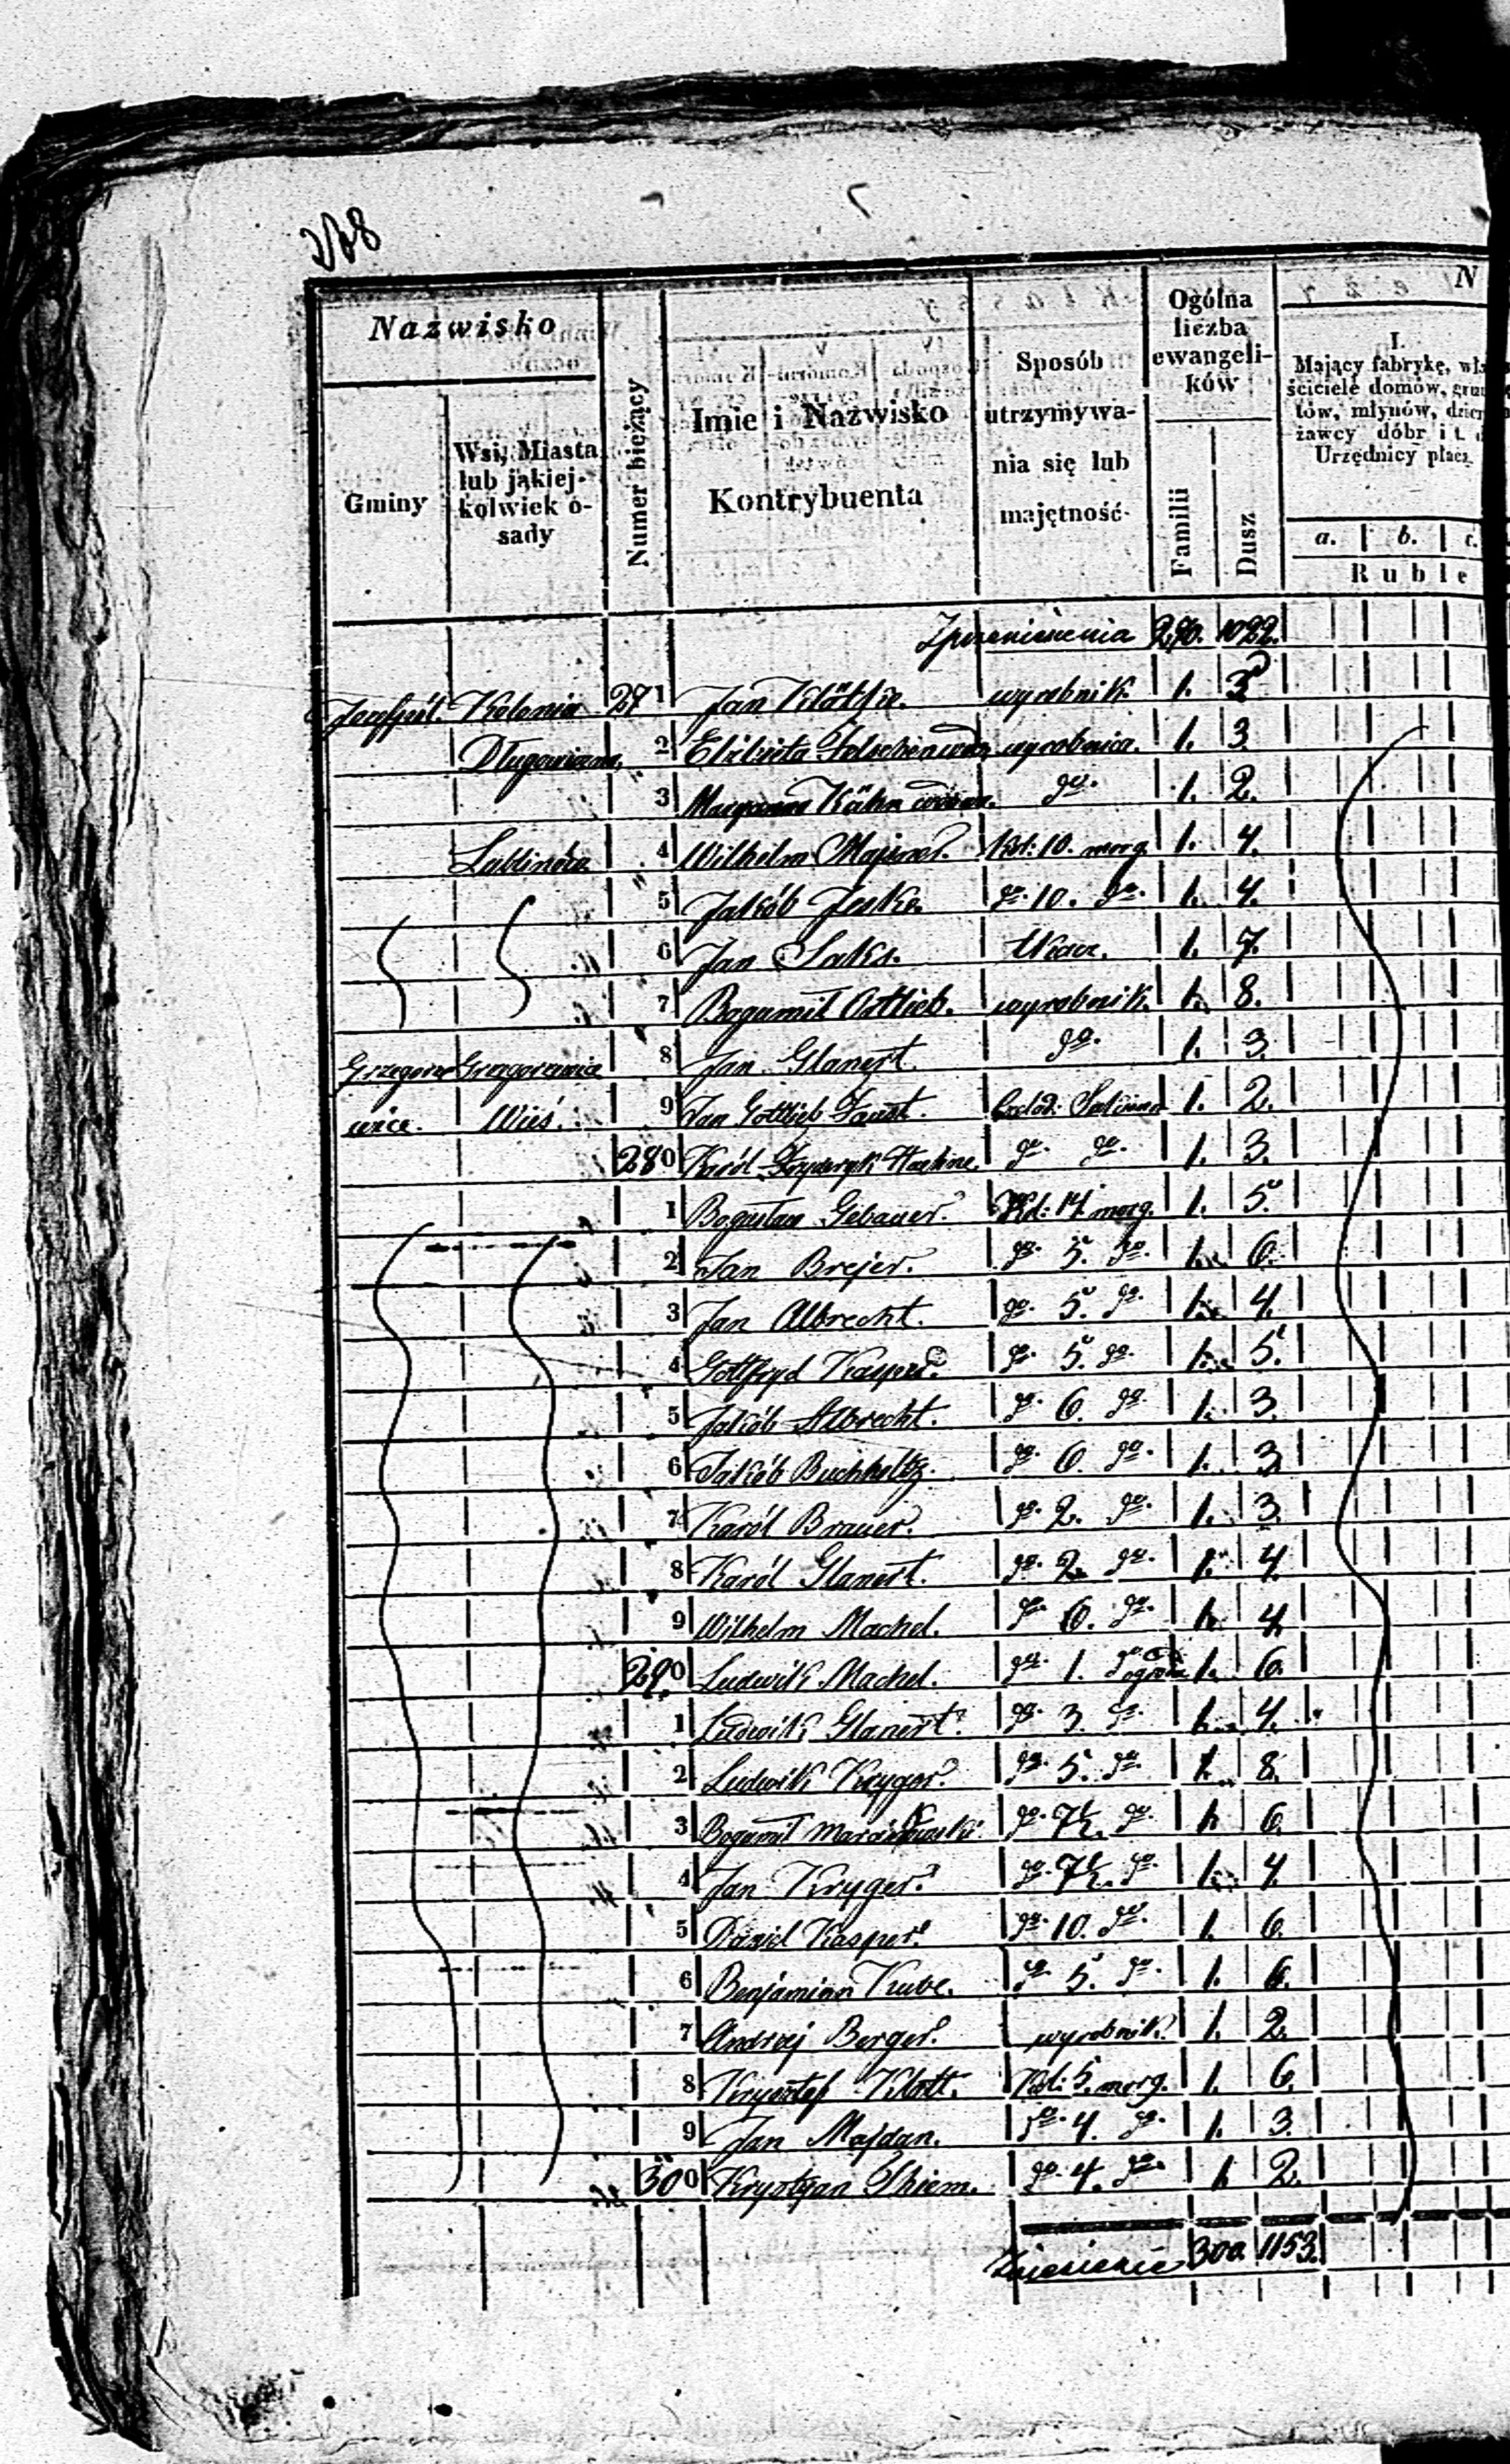 Nazwisko
Gminy
Wsi, Miasta lub jakiej-kolwiek o-sady
Numer bieżący
Imie i Nazwisko Kontrybuenta
Sposób utrzymywa-nia się lub majętność
Ogólna liczba ewangeli-ków
Familii
Dusz
N
I.
Mający fabrykę,
ściciele domów,
tów, młynów,
żawcy dóbr i t.
Urzędnicy płacą
a. b. c.
Ruble
Zprzeniesienia 270. 1022.
Kolonia 271 Jan wyrobnik 1. 3
2 Elżbieta wyrobnica. 1. 3.
3 Maryanna Kühn do. 1. 2.
4 Wilhelm Majner. Kol: 10. morg 1. 4.
5 Jakób Jeske. do. 10. do. 1. 4.
6 Jan Saks. tkacz. 1. 7.
7 Bogumił Ortlieb. wyrobnik. 1. 8.
Grzegorze 8 Jan Glanert. do. 1. 3.
wice. Wieś. 9 Jan Gottlieb Faust. 1. 2.
280 Karól Fryderyk do. do. 1. 3.
1 Bogusław Gebauer. Kol: 14. morg. 1. 5.
2 Jan Brejer. do. 5. do. 1. 6.
3 Jan Albrecht. do. 5. do. 1. 4.
4 Gottfryd Kasper. do. 5. do. 1. 5.
5 Jakób Albrecht. do. 6. do. 1. 3.
6 Jakób Buchholtz. do. 6. do. 1. 3.
7 Karól Brauer. do. 2. do. 1. 3.
8 Karól Glanert. do. 2. do. 1. 4.
9 Wilhelm Machel. do. 6. do. 1. 4.
290 Ludwik Machel. do. 1. do 1. 6.
1 Ludwik Glanert. do. 3. do. 1. 4.
2 Ludwik Kryger. do. 5. do. 1. 8.
3 Bogumił Marcinkowski do. 7½. do. 1. 6.
4 Jan Kryger. do. 7½. do. 1. 4.
5 Daniel Kasper. do. 10. do. 1. 6.
6 Benjamin Kube. do. 5. do. 1. 6.
7 Andrzej Berger. wyrobnik. 1. 2.
8 Krysztof Klott. Kol: 5. morg. 1. 6.
9 Jan Majdan. do. 4. do. 1. 3.
300 Krystyan Thiem. do. 4. do. 1. 2.
300. 1153.